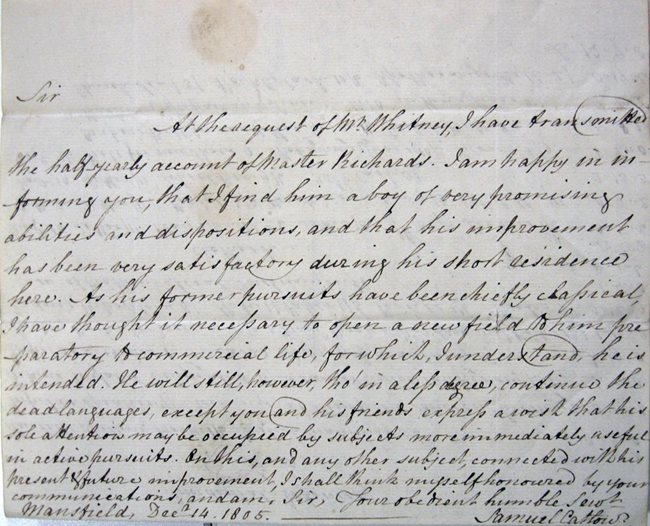 Sir
At the request of Mr. Whitney, I have transmitted
the half yearly account of Master Richards. I am happy in in-
forming you, that I find him a boy of very promising
abilities and dispositions, and that his improvement
has been very satisfactory during his short residence
here. As his former pursuits have been chiefly classical,
I have thought it necessary to open a new field to him pre-
paratory to commercial life, for which, I understand, he is
intended. He will still, however, tho' in a less degree, continue the
dead languages, except you and his friends express a wish that his
sole attention may be occupied by subjects more immediately useful
in active pursuits. On this, and any other subject, connected with his
present & future improvement, I shall think myself honoured by your
communications, and am, Sir, Your obedient humble Servt
Mansfield, Decr. 14. 1805. Samuel Catlow